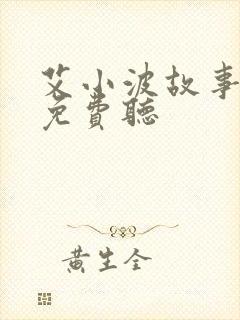 艾小波故事
免費聽
黃生全